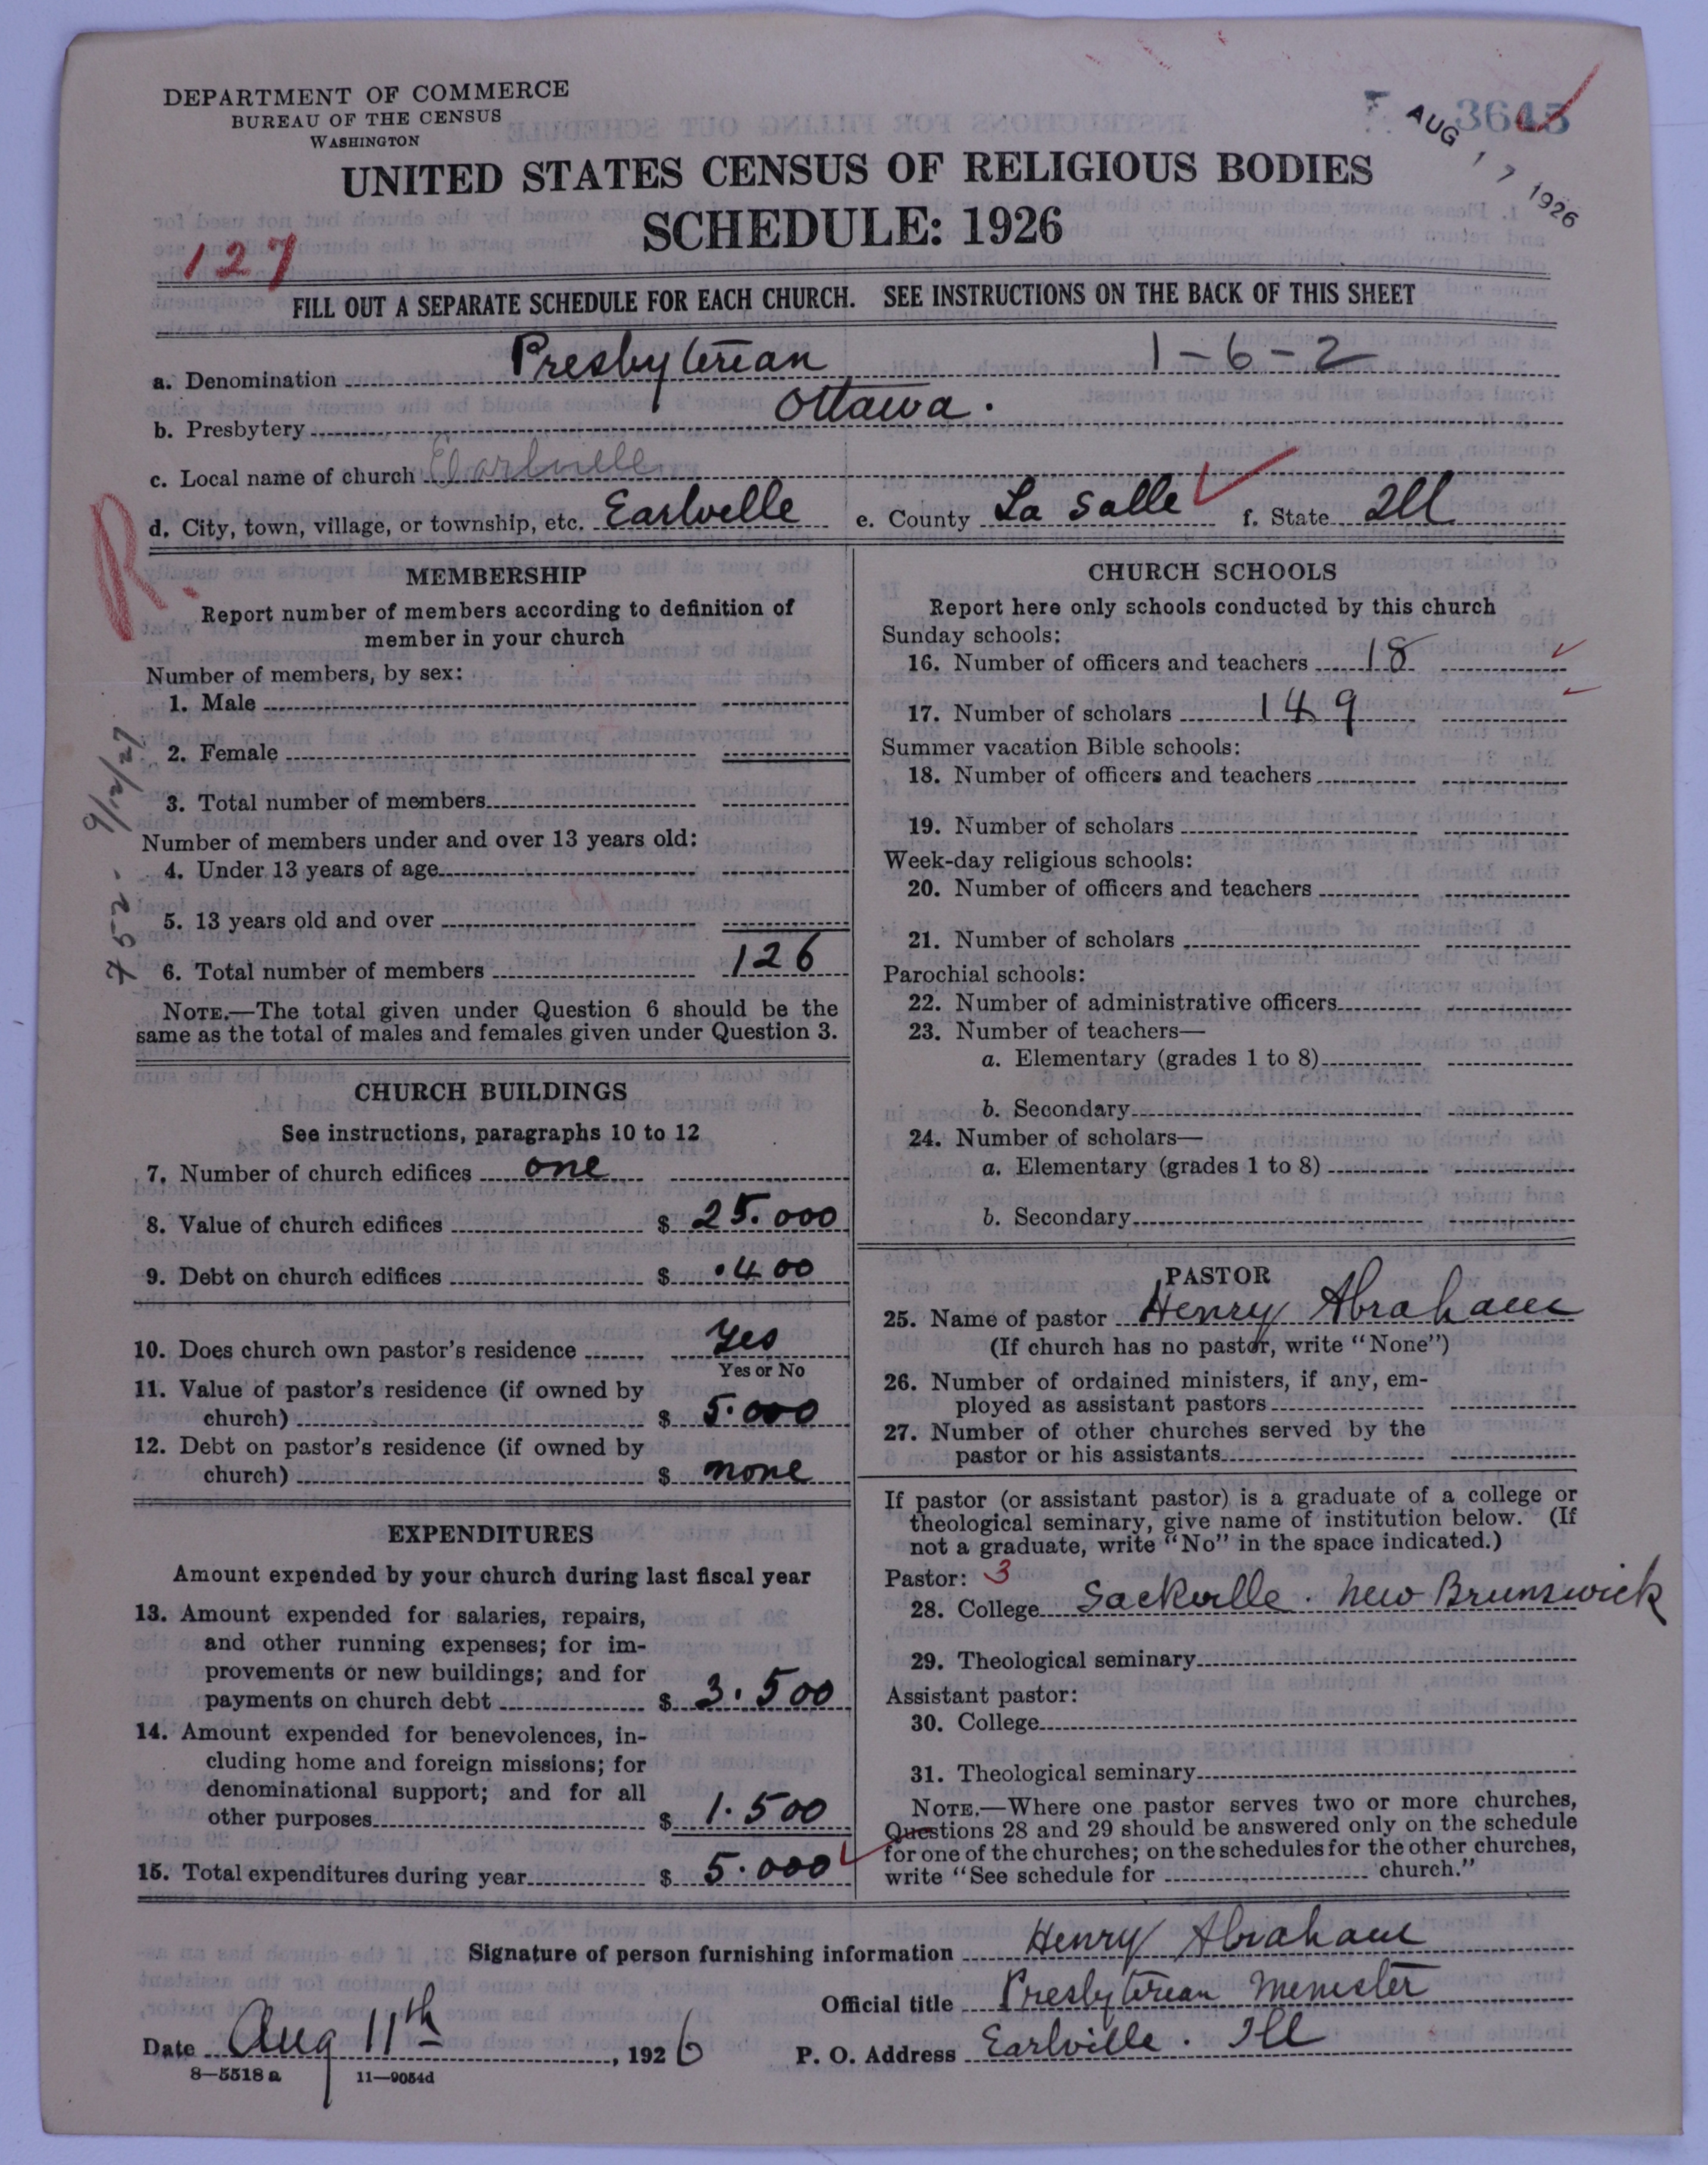 DEPARTMENT OF COMMERCE
BUREAU OF THE CENSUS
WASHINGTON
AUG 17 1926
UNITED STATES CENSUS OF RELIGIOUS BODIES
SCHEDULE: 1926
127
FILL OUT A SEPARATE SCHEDULE FOR EACH CHURCH. SEE INSTRUCTIONS ON THE BACK OF THIS SHEET
a. Denomination Presbyterian 1-6-2
b. Presbytery Ottawa.
c. Local name of church Earlville
d. City, town, village, or township, etc. Earlville e. County La Salle f. State Ill
R.
752 - 9/12/27
MEMBERSHIP
Report number of members according to definition of
member in your church
Number of members, by sex:
1. Male
2. Female
3. Total number of members
Number of members under and over 13 years old:
4. Under 13 years of age
5. 13 years old and over
6. Total number of members 126
NOTE.—The total given under Question 6 should be the
same as the total of males and females given under Question 3.
CHURCH BUILDINGS
See instructions, paragraphs 10 to 12
7. Number of church edifices one
8. Value of church edifices $ 25.000
9. Debt on church edifices $ .400
10. Does church own pastor's residence Yes
Yes or No
11. Value of pastor's residence (if owned by
church) $ 5.000
12. Debt on pastor's residence (if owned by
church) $ none
EXPENDITURES
Amount expended by your church during last fiscal year
13. Amount expended for salaries, repairs,
and other running expenses; for im-
provements or new buildings; and for
payments on church debt $ 3.500
14. Amount expended for benevolences, in-
cluding home and foreign missions; for
denominational support; and for all
other purposes $ 1.500
15. Total expenditures during year $ 5.000
CHURCH SCHOOLS
Report here only schools conducted by this church
Sunday schools:
16. Number of officers and teachers 18
17. Number of scholars 149
Summer vacation Bible schools:
18. Number of officers and teachers
19. Number of scholars
Week-day religious schools:
20. Number of officers and teachers
21. Number of scholars
Parochial schools:
22. Number of administrative officers
23. Number of teachers—
a. Elementary (grades 1 to 8)
b. Secondary
24. Number of scholars—
a. Elementary (grades 1 to 8)
b. Secondary
PASTOR
25. Name of pastor Henry Abraham
(If church has no pastor, write "None")
26. Number of ordained ministers, if any, em-
ployed as assistant pastors
27. Number of other churches served by the
pastor or his assistants
If pastor (or assistant pastor) is a graduate of a college or
theological seminary, give name of institution below. (If
not a graduate, write "No" in the space indicated.)
Pastor: 3
28. College Sackville. New Brunswick
29. Theological seminary
Assistant pastor:
30. College
31. Theological seminary
NOTE.—Where one pastor serves two or more churches,
Questions 28 and 29 should be answered only on the schedule
for one of the churches; on the schedules for the other churches,
write "See schedule for church."
Signature of person furnishing information Henry Abraham
Official title Presbyterian Minister
Date Aug 11th, 1926 P. O. Address Earlville. Ill
8—5518a 11—9054d